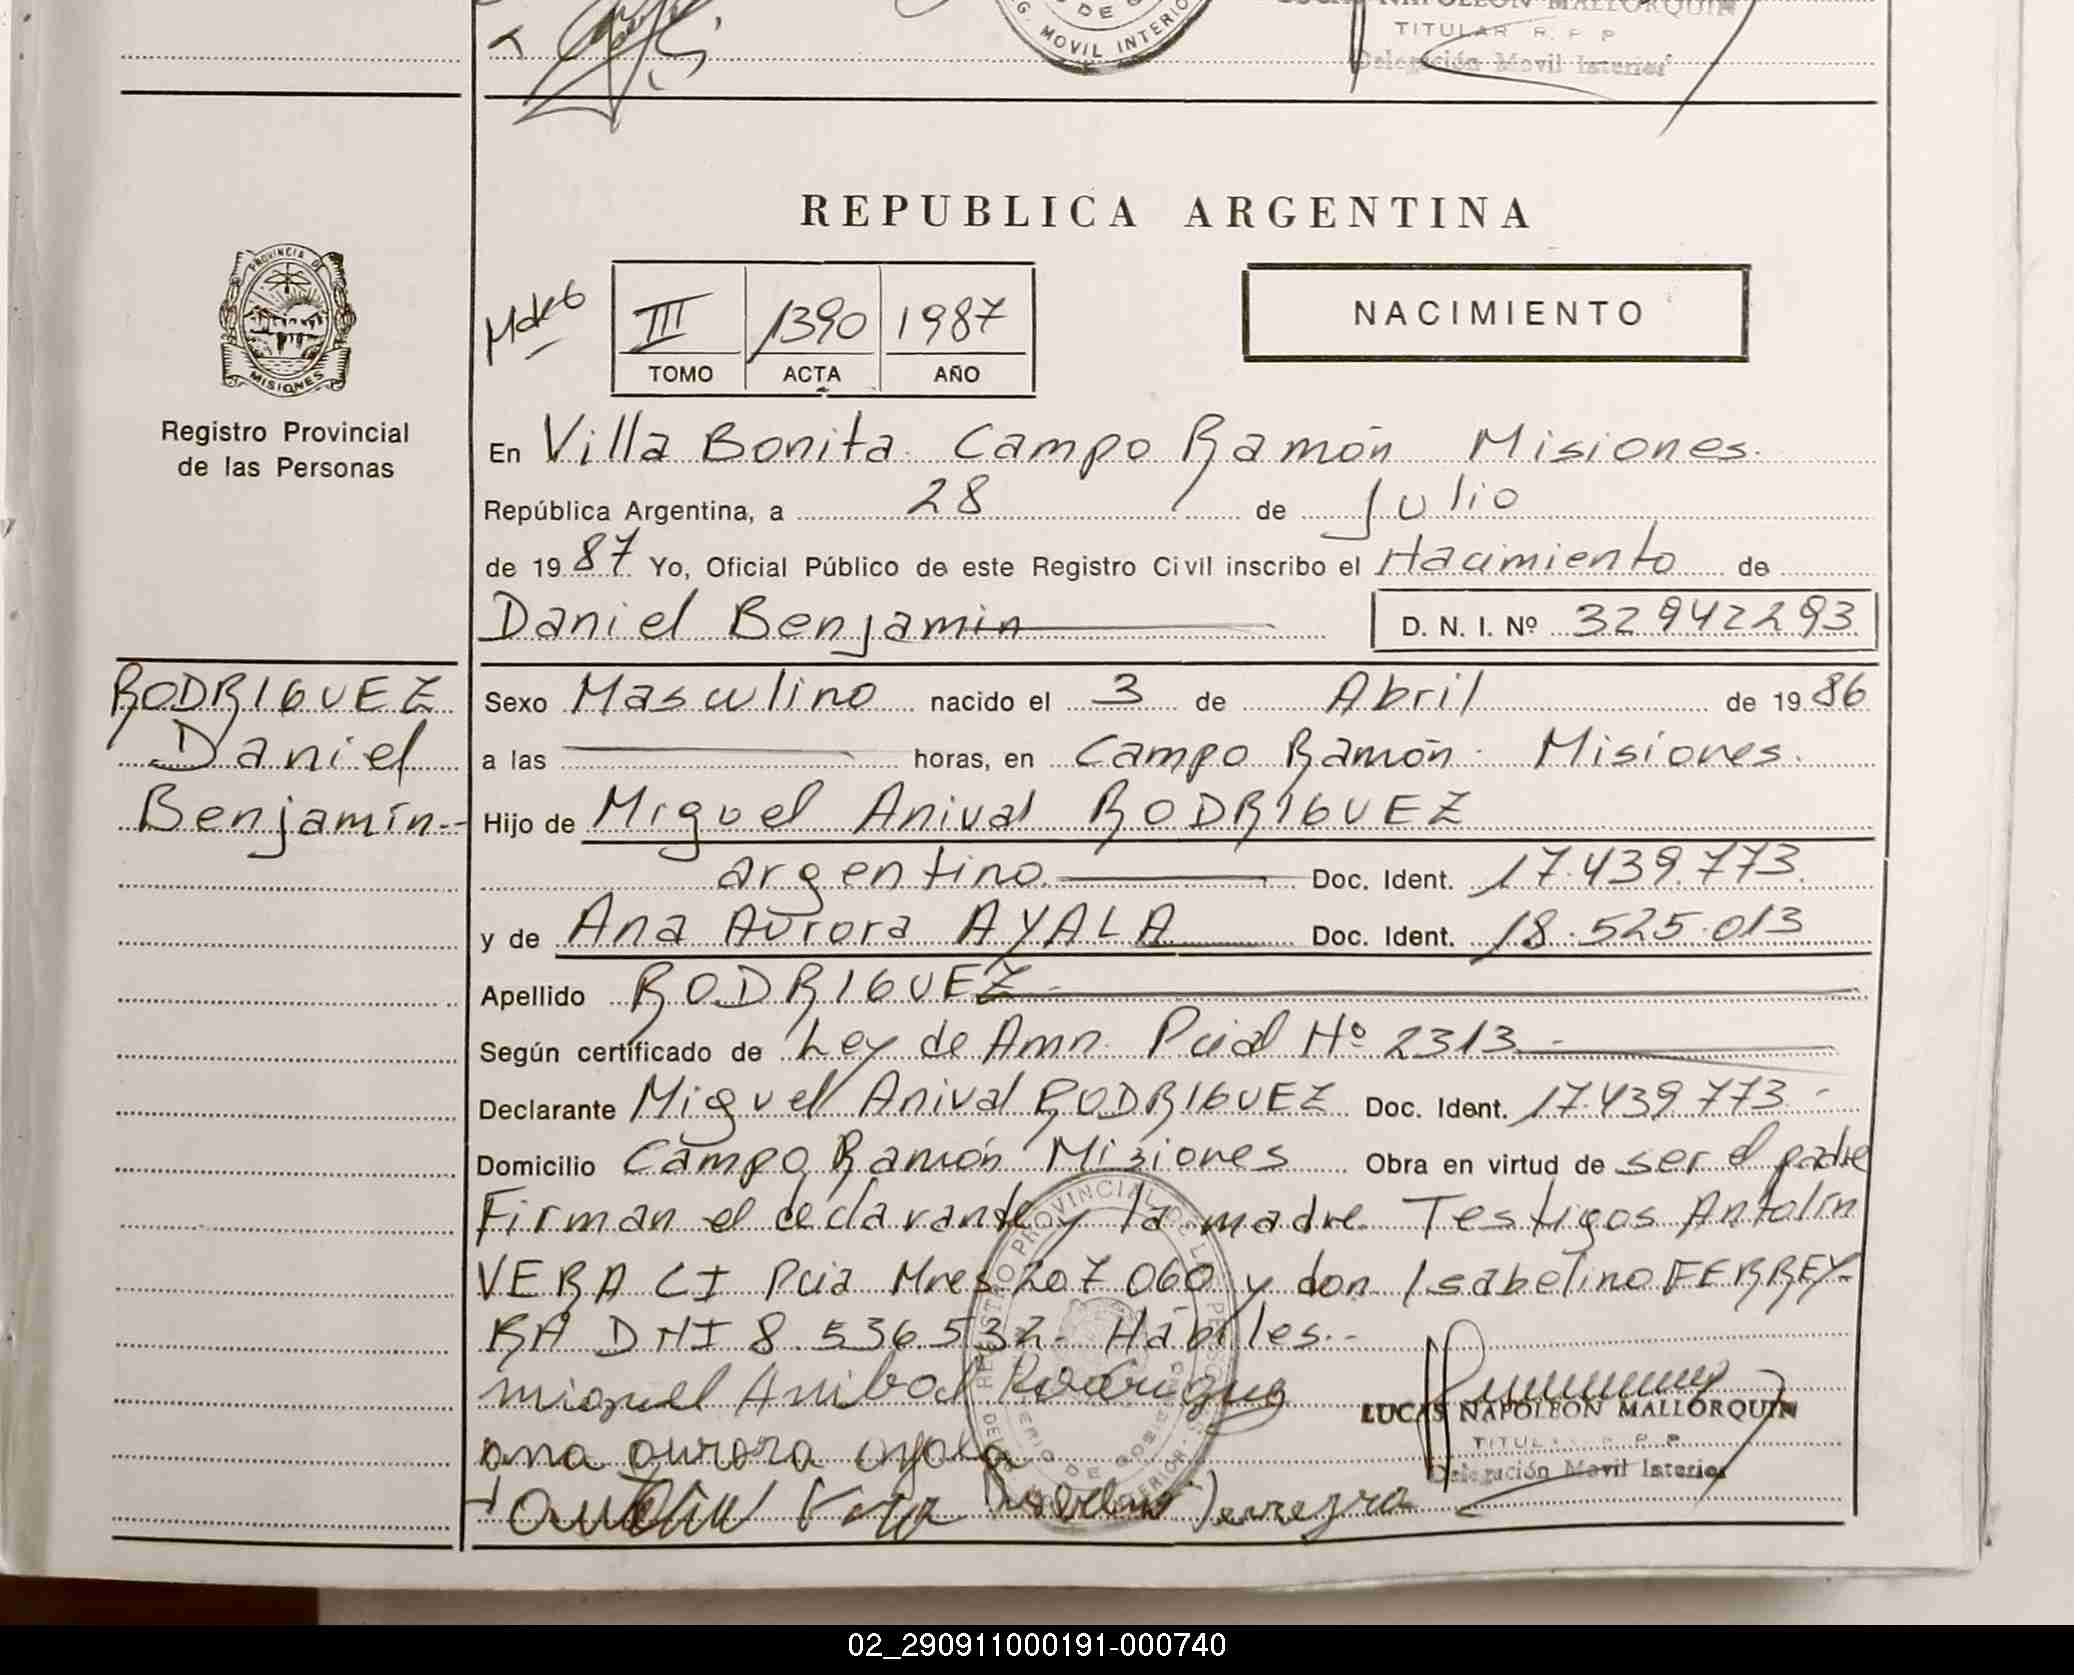 LUCAS NAPOLEON MALLORQUIN
TITULAR R. P. P.
Delegación Movil Interior
MOVIL INTERIOR
REPUBLICA ARGENTINA
PROVINCIA DE
MISIONES
Registro Provincial
de las Personas
III 1390 1987
TOMO ACTA AÑO
NACIMIENTO
En Villa Bonita Campo Ramón Misiones.
República Argentina, a 28 de Julio
de 1987 Yo, Oficial Público de este Registro Civil inscribo el Nacimiento de
Daniel Benjamin D. N. I. Nº 32942293
RODRIGUEZ
Daniel
Benjamín.-
Sexo Masculino nacido el 3 de Abril de 1986
a las horas, en Campo Ramón Misiones.
Hijo de Miguel Anival RODRIGUEZ
argentino. Doc. Ident. 17.439.773.
y de Ana Aurora AYALA Doc. Ident. 18.525.013
Apellido RODRIGUEZ-
Según certificado de Ley de Amn. Pcial Nº 2313.-
Declarante Miguel Anival RODRIGUEZ Doc. Ident. 17.439.773-
Domicilio Campo Ramón Misiones Obra en virtud de ser el padre
Firman el declarante y la madre Testigos Antolín
VERA CI Pcia Mnes 207.060 y don Isabelino FERREY-
RA DNI 8.536.532- Hábiles.-
miguel Anibal Rodriguez
ana aurora ayala
Vera Ferreyra
LUCAS NAPOLEON MALLORQUIN
TITULAR R. P. P.
Delegación Movil Interior
02_290911000191-000740